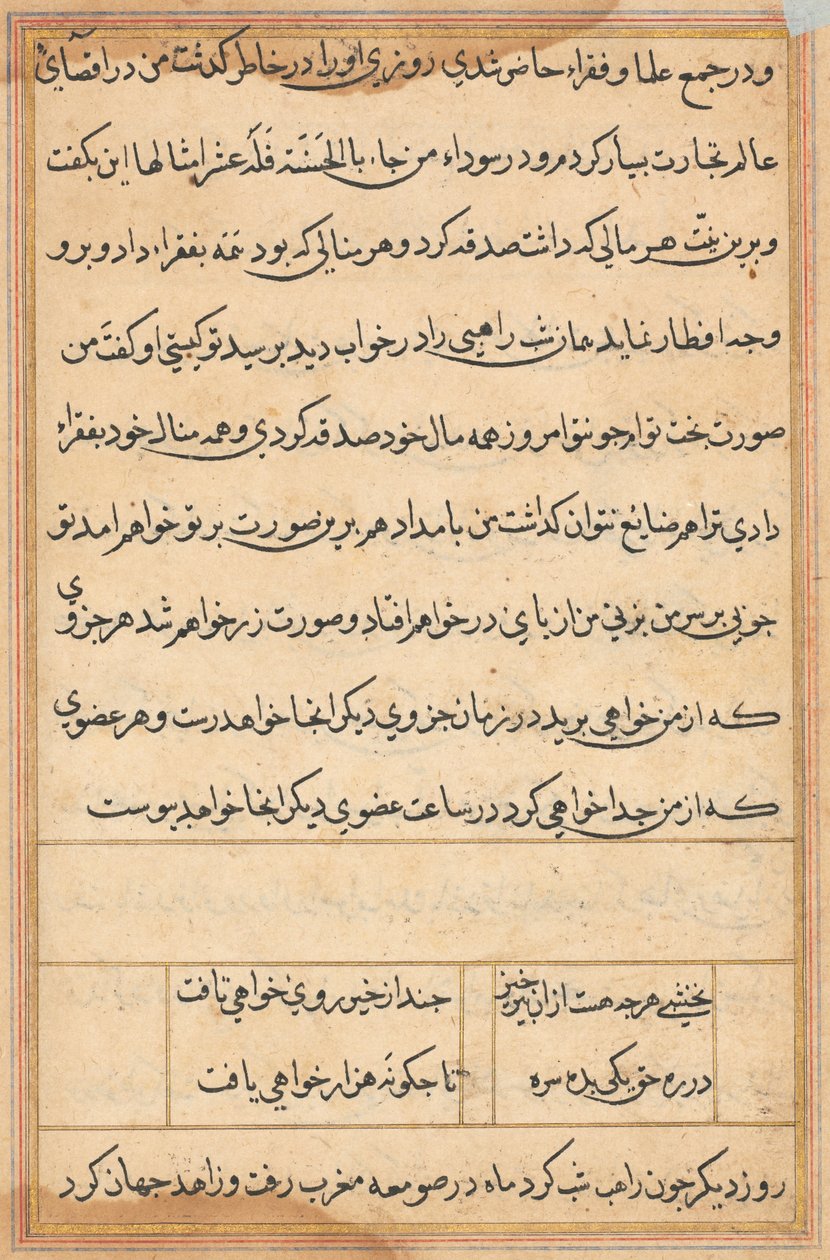 و در جمع علما و فقراء حاضر شدي روزي او را در خاطر كذشت من در اقصآي
عالم تجارت بسيار كردم و در سوداء من جاء بالحَسَنَة فَلَهُ عشر امثالها اين بكفت
و برين نيّت هر مالي كه داشت صدقه كرد و هر منالي كه بود همَه بفقراء داد و برو
وجه افطار نماند همان شب راهبي را در خواب ديد برسيد تو كيستي او كفت من
صورت بخت توام جو تو امروز همه مال خود صدقه كردي و همه منال خود بفقراء
دادي ترا هم ضايع نتوان كذاشت من بامداد هم برين صورت بر تو خواهم امد تو
جوبي بر سر من بزني من از باي در خواهم افتاد و صورت زر خواهم شد هر جزوي
كه از من خواهي بريد در زمان جزوي ديكر انجا خواهد رست و هر عضوي
كه از من جدا خواهي كرد در ساعت عضوي ديكر انجا خواهد بيوست
نخشبي هر جه هست ازان برخيز
جند از خير روي خواهي تافت
در ره حق يكي بده سره
تا جكونَه هزار خواهي يافت
روز ديكر جون راهب شب كرد ماه در صومعه مغرب رفت و زاهد جهان كرد